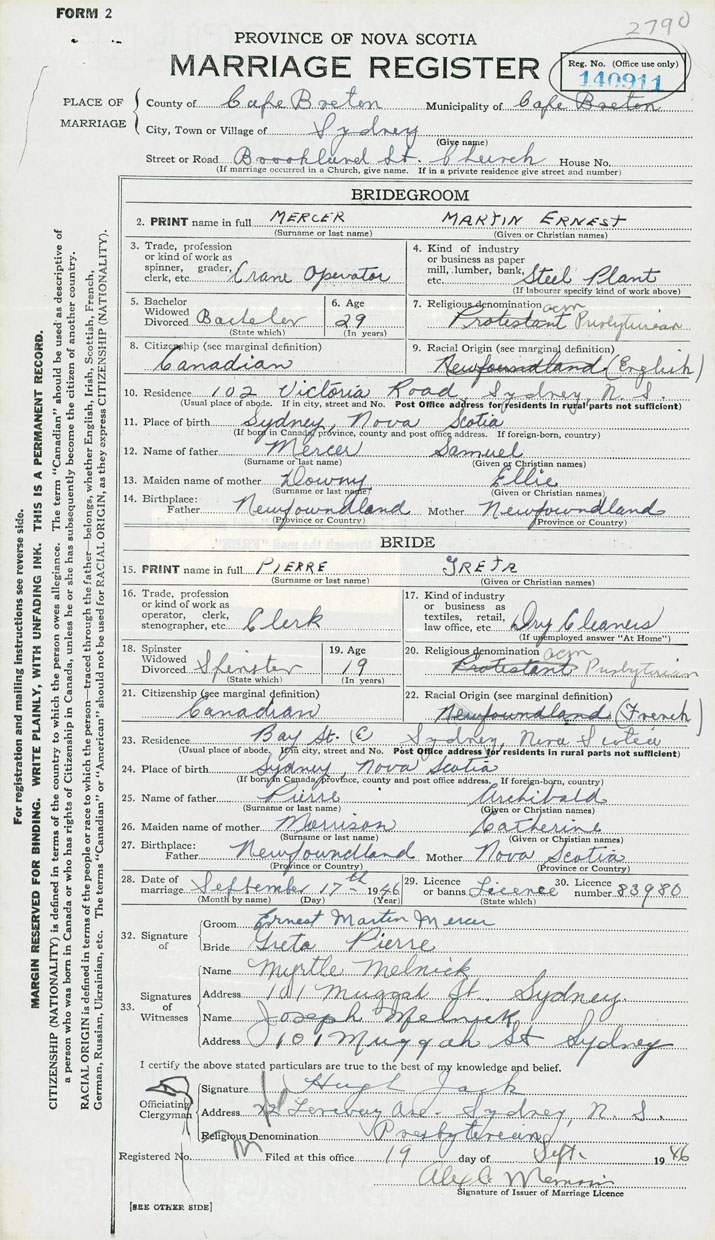 FORM 2
2790
PROVINCE OF NOVA SCOTIA
MARRIAGE REGISTER
Reg. No. (Office use only)
140911
PLACE OF MARRIAGE
County of Cape Breton Municipality of Cape Breton
City, Town or Village of Sydney
(Give name)
Street or Road Brookland St. Church House No.
(If marriage occurred in a Church, give name. If in a private residence give street and number)
BRIDEGROOM
2. PRINT name in full MERCER MARTIN ERNEST
(Surname or last name) (Given or Christian names)
3. Trade, profession or kind of work as spinner, grader, clerk, etc. Crane Operator
4. Kind of industry or business as paper mill, lumber, bank, etc. Steel Plant
(If labourer specify kind of work above)
5. Bachelor Widowed Divorced Bachelor
(State which)
6. Age 29
(In years)
7. Religious denomination Protestant Presbyterian
8. Citizenship (see marginal definition) Canadian
9. Racial Origin (see marginal definition) Newfoundland (English)
10. Residence 102 Victoria Road, Sydney, N. S.
(Usual place of abode. If in city, street and No. Post Office address for residents in rural parts not sufficient)
11. Place of birth Sydney, Nova Scotia
(If born in Canada, province, county and post office address. If foreign-born, country)
12. Name of father Mercer Samuel
(Surname or last name) (Given or Christian names)
13. Maiden name of mother Downy Ellie
(Surname or last name) (Given or Christian names)
14. Birthplace: Father Newfoundland Mother Newfoundland
(Province or Country) (Province or Country)
BRIDE
15. PRINT name in full PIERRE GRETA
(Surname or last name) (Given or Christian names)
16. Trade, profession or kind of work as operator, clerk, stenographer, etc. Clerk
17. Kind of industry or business as textiles, retail, law office, etc. Dry Cleaners
(If unemployed answer "At Home")
18. Spinster Widowed Divorced Spinster
(State which)
19. Age 19
(In years)
20. Religious denomination Protestant Presbyterian
21. Citizenship (see marginal definition) Canadian
22. Racial Origin (see marginal definition) Newfoundland (French)
23. Residence Bay St. E Sydney, Nova Scotia
(Usual place of abode. If in city, street and No. Post Office address for residents in rural parts not sufficient)
24. Place of birth Sydney, Nova Scotia
(If born in Canada, province, county and post office address. If foreign-born, country)
25. Name of father Pierre Archibald
(Surname or last name) (Given or Christian names)
26. Maiden name of mother Morrison Catherine
(Surname or last name) (Given or Christian names)
27. Birthplace: Father Newfoundland Mother Nova Scotia
(Province or Country) (Province or Country)
28. Date of marriage September 17th 1946
(Month by name) (Day) (Year)
29. Licence or banns Licence
(State which)
30. Licence number 83980
32. Signature of
Groom Ernest Martin Mercer
Bride Greta Pierre
33. Signatures of Witnesses
Name Myrtle Melnick
Address 101 Muggah St. Sydney.
Name Joseph Melnick
Address 101 Muggah St Sydney
I certify the above stated particulars are true to the best of my knowledge and belief.
Officiating Clergyman
Signature Hugh Jack
Address Ave. Sydney, N. S.
Religious Denomination Presbyterian
Registered No. Filed at this office 19 day of Sept. 1946
Alex
Signature of Issuer of Marriage Licence
[SEE OTHER SIDE]
For registration and mailing instructions see reverse side.
MARGIN RESERVED FOR BINDING. WRITE PLAINLY, WITH UNFADING INK. THIS IS A PERMANENT RECORD.
CITIZENSHIP (NATIONALITY) is defined in terms of the country to which the person owes allegiance. The term "Canadian" should be used as descriptive of
a person who was born in Canada or who has rights of Citizenship in Canada, unless he or she has subsequently become the citizen of another country.
RACIAL ORIGIN is defined in terms of the people or race to which the person—traced through the father—belongs, whether English, Irish, Scottish, French,
German, Russian, Ukrainian, etc. The terms "Canadian" or "American" should not be used for RACIAL ORIGIN, as they express CITIZENSHIP (NATIONALITY).